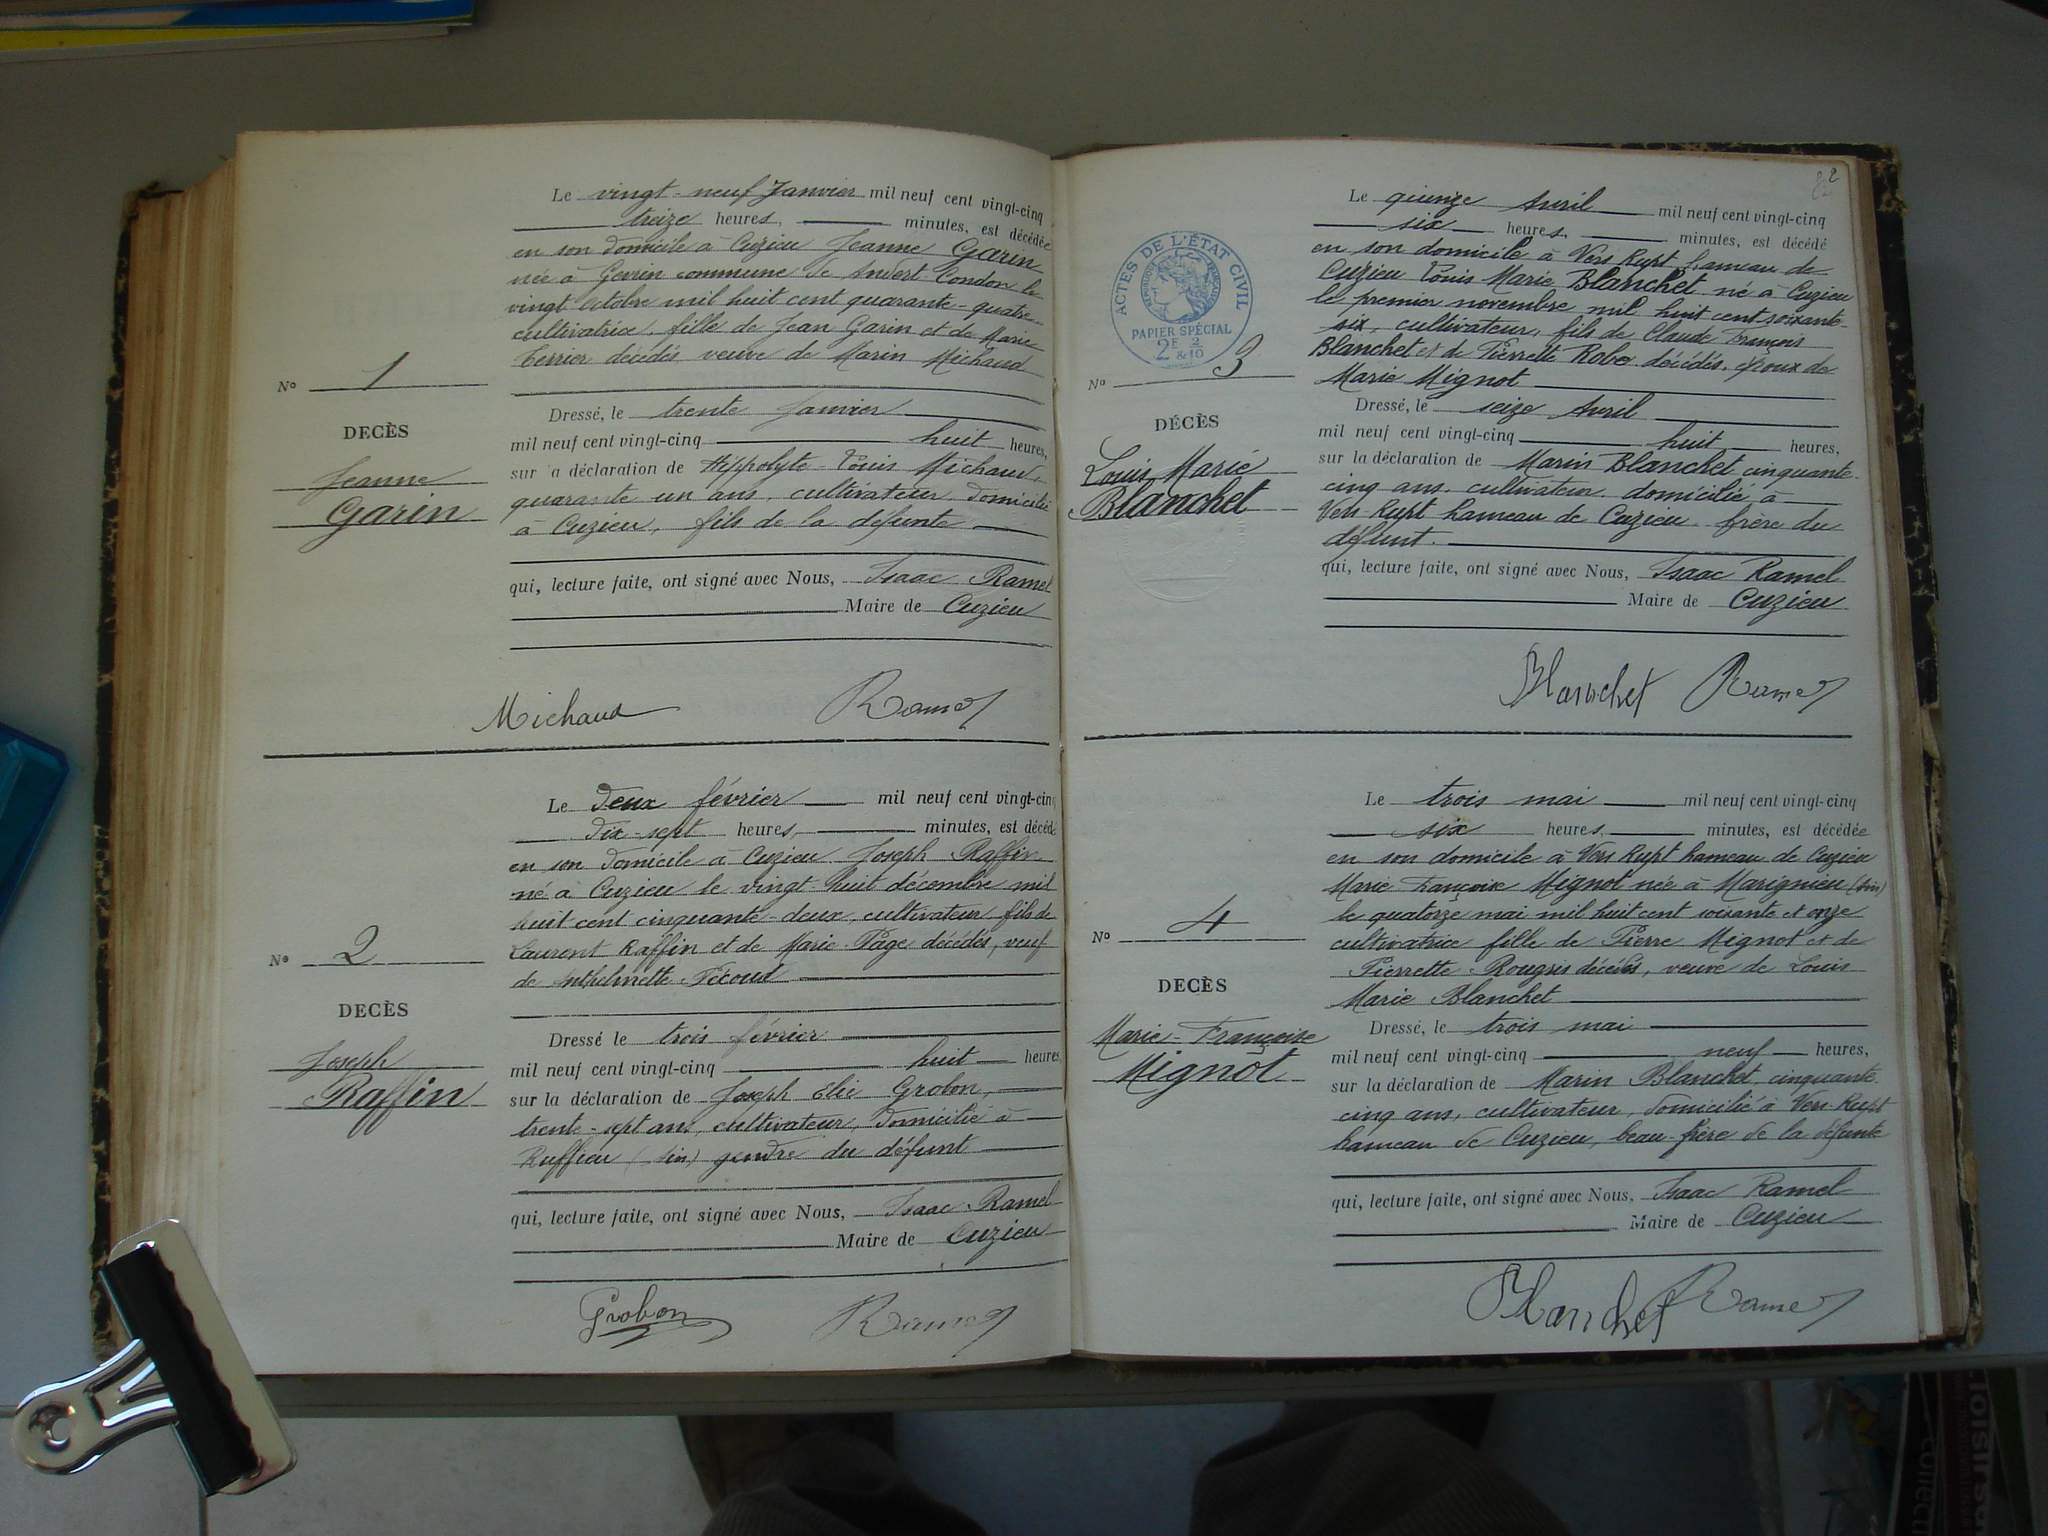 Le vingt-neuf Janvier mil neuf cent vingt-cinq
treize heures, minutes, est décédée
en son domicile à Cuzieu Jeanne Garin
née à Gevrin commune de Andert-Condon le
vingt Octobre mil huit cent quarante-quatre
cultivatrice, fille de Jean Garin et de Marie
Terrier décédés veuve de Marin Michaud
No 1
DECÈS
Jeanne
Garin
Dressé, le trente Janvier
mil neuf cent vingt-cinq huit heures,
sur a déclaration de Hippolyte-Louis Michaud,
quarante un ans, cultivateur domicilié
à Cuzieu, fils de la défunte
qui, lecture faite, ont signé avec Nous, Isaac Ramel
Maire de Cuzieu
Michaud Ramel
Le deux février mil neuf cent vingt-cinq
dix-sept heures, minutes, est décédé
en son domicile à Cuzieu Joseph Raffin
né à Cuzieu le vingt-huit décembre mil
huit cent cinquante-deux, cultivateur, fils de
Laurent Raffin et de Marie Page décédés, veuf
de Anthelmette Fécoud
No 2
DECÈS
Joseph
Raffin
Dressé le trois février
mil neuf cent vingt-cinq huit heures,
sur la déclaration de Joseph Elie Grobon,
trente-sept ans, cultivateur, domicilié à
Ruffieu (Ain) gendre du défunt
qui, lecture faite, ont signé avec Nous, Isaac Ramel
Maire de Cuzieu
Grobon Ramel
2
Le quinze Avril mil neuf cent vingt-cinq
six heures, minutes, est décédé
en son domicile à Vers Rupt hameau de
Cuzieu Louis Marie Blanchet né à Cuzieu
le premier novembre mil huit cent soixante-
six, cultivateur, fils de Claude François
Blanchet et de Pierrette Robe décédés, époux de
Marie Mignot
ACTES DE L'ÉTAT CIVIL
RÉPUBLIQUE FRANÇAISE
PAPIER SPÉCIAL
2E 2
&10
No 3
DÉCÈS
Louis Marie
Blanchet
Dressé, le seize Avril
mil neuf cent vingt-cinq huit heures,
sur la déclaration de Marin Blanchet cinquante-
cinq ans, cultivateur, domicilié à
Vers-Rupt hameau de Cuzieu frère du
défunt.
qui, lecture faite, ont signé avec Nous, Isaac Ramel
Maire de Cuzieu
Blanchet Ramel
Le trois mai mil neuf cent vingt-cinq
six heures, minutes, est décédée
en son domicile à Vers Rupt hameau de Cuzieu
Marie Françoise Mignot née à Marignieu (Ain)
le quatorze mai mil huit cent soixante et onze
cultivatrice fille de Pierre Mignot et de
Pierrette décédés, veuve de Louis
Marie Blanchet
No 4
DECÈS
Marie-Françoise
Mignot
Dressé, le trois mai
mil neuf cent vingt-cinq neuf heures,
sur la déclaration de Marin Blanchet, cinquante-
cinq ans, cultivateur, domicilié à Vers-Rupt
hameau de Cuzieu, beau-frère de la défunte
qui, lecture faite, ont signé avec Nous, Isaac Ramel
Maire de Cuzieu
Blanchet Ramel